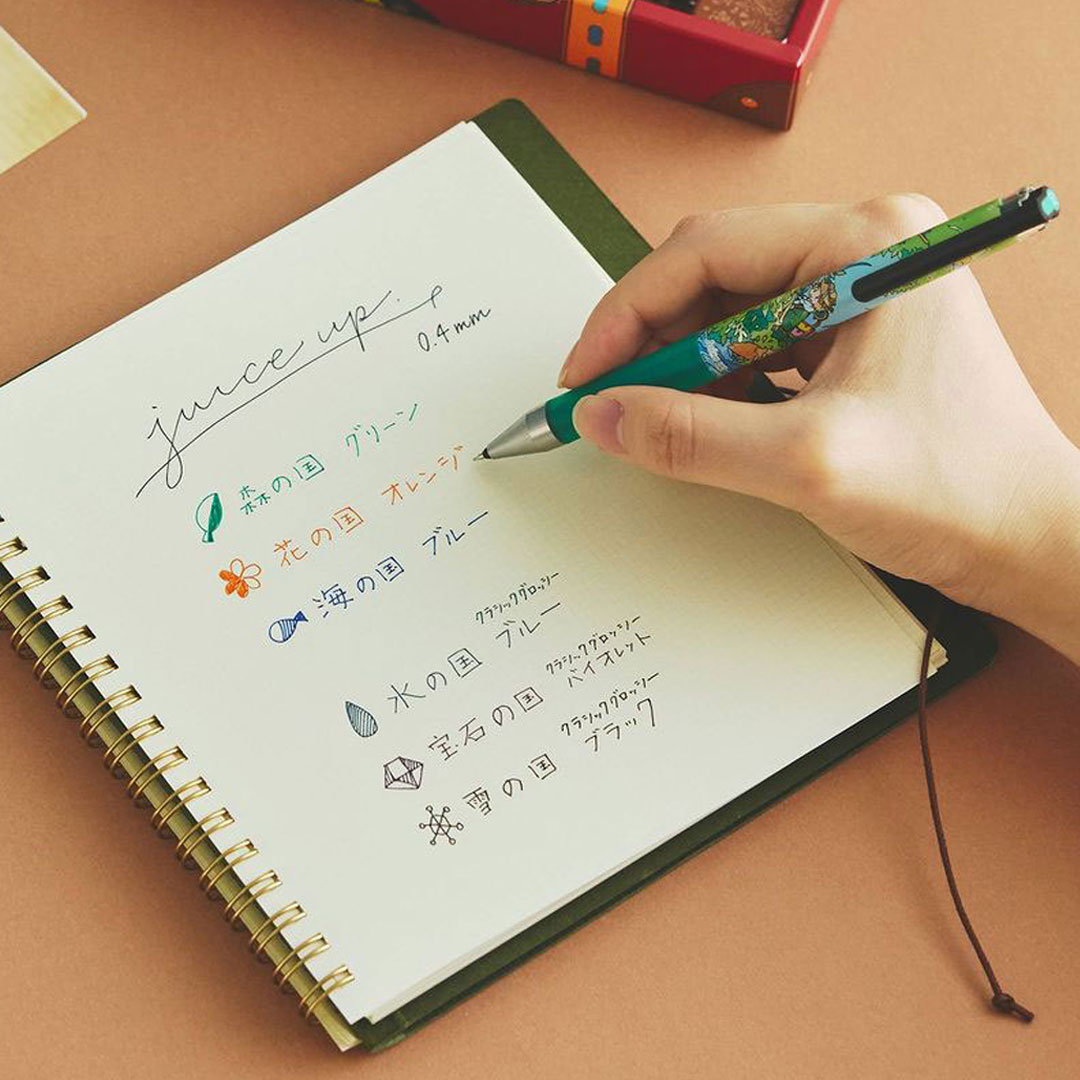 juice up.
0.4 mm
森の国 グリーン
花の国 オレンジ
海の国 ブルー
氷の国 クラシックグロッシー ブルー
宝石の国 クラシックグロッシー バイオレット
雪の国 クラシックグロッシー ブラック